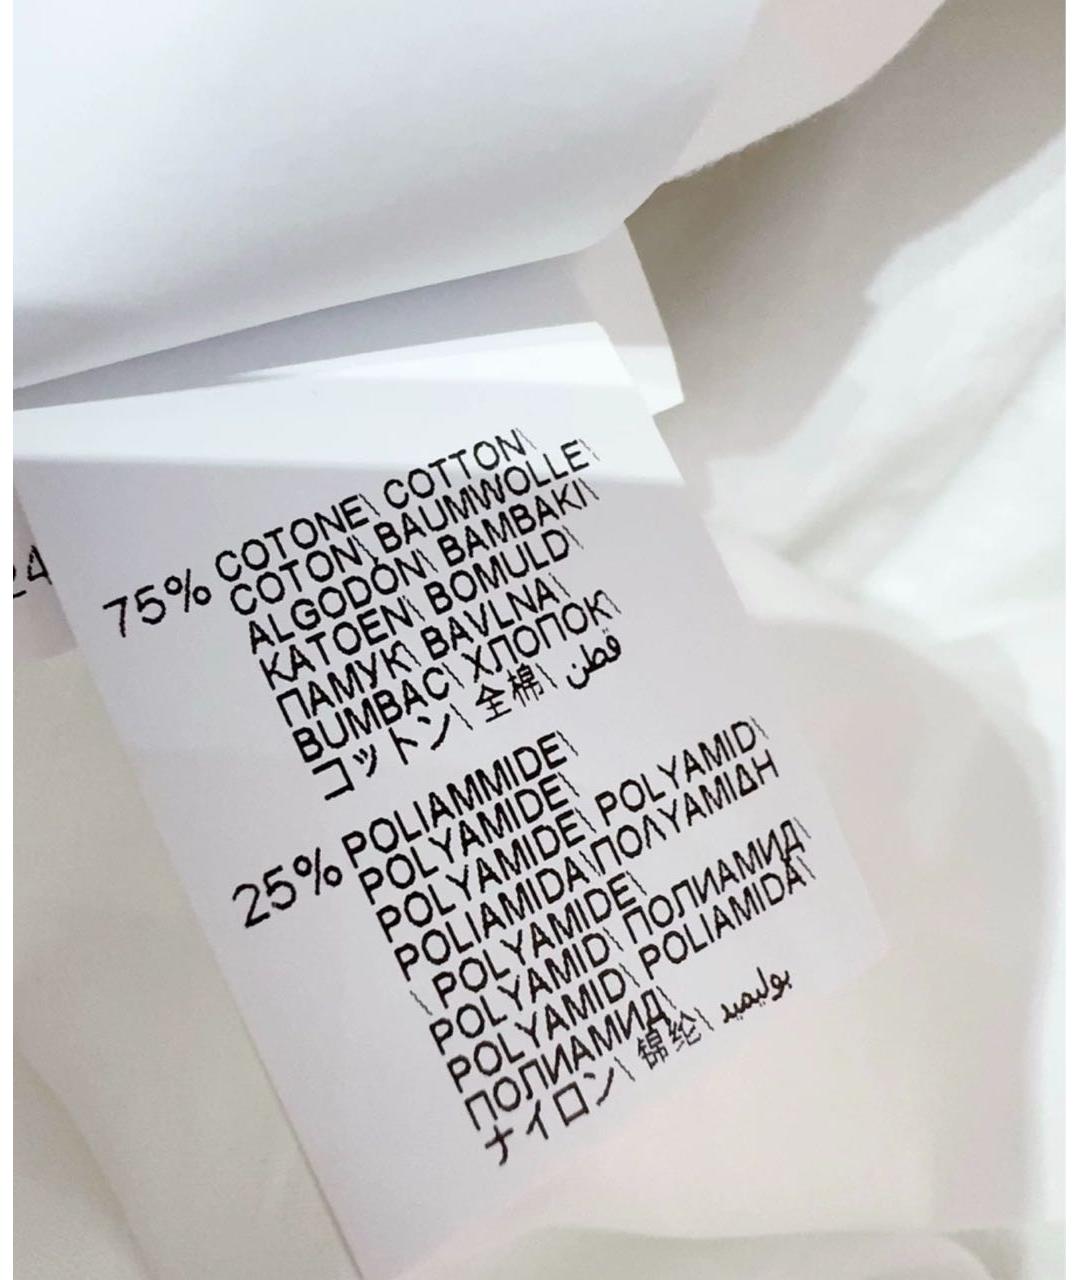 24
75% COTONE\ COTTON\
COTON\ BAUMWOLLE\
ALGODÓN\ BAMBAKI\
KATOEN\ BOMULD\
ПАМУК\ BAVLNA\
BUMBAC\ ХЛОПОК\
コットン\ 全棉\ قطن
25% POLIAMMIDE\
POLYAMIDE\
POLYAMIDE\ POLYAMID\
POLIAMIDA\ΠΟΛΥΑΜΙΔΗ
\ POLYAMIDE\
POLYAMID\ ПОЛИАМИД\
POLYAMID\ POLIAMIDA\
ПОЛИАМИД\
ナイロン\ 锦纶\ بوليميد